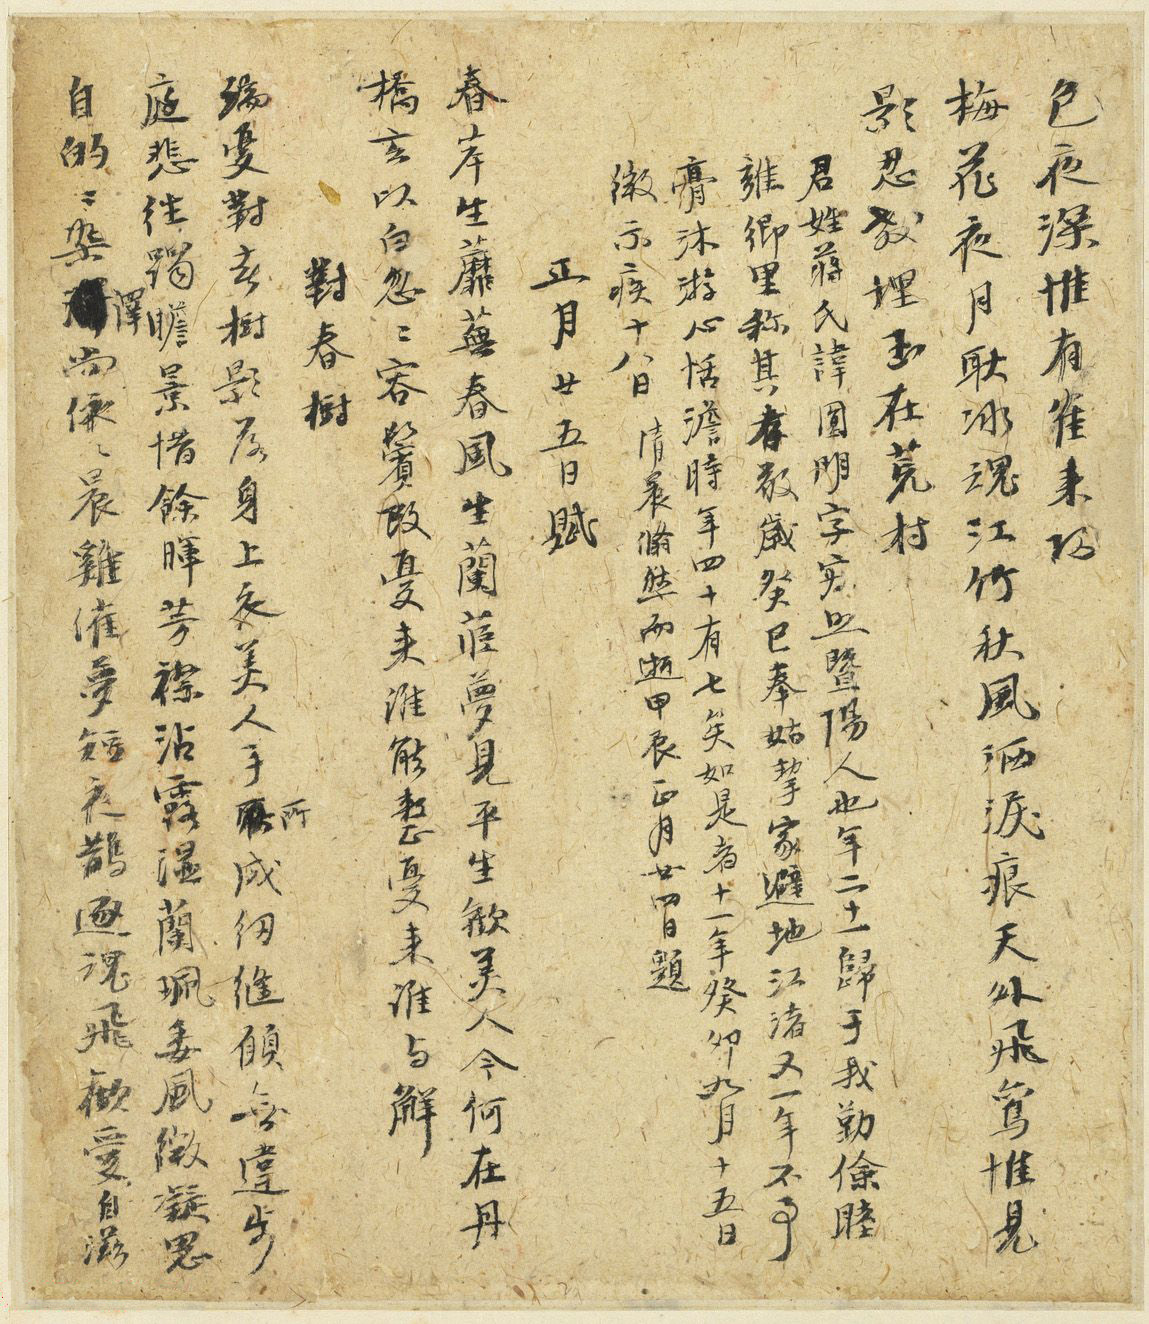 色夜深惟有雀來巧
梅花夜月耿冰魂江竹秋風洒淚痕天外飛鸞惟見
影忍教埋玉在荒村
君姓蔣氏諱圓明字寂照暨陽人也年二十一歸于我勤儉睦
雍鄉里称其孝敬歲癸巳奉姑挈家避地江渚又一年不事
膏沐游心恬澹時年四十有七矣如是者十一年癸卯九月十五日
微示疾十八日清晨翛然而逝甲辰正月廿四日題
正月廿五日賦
春岸生蘼蕪春風生蘭茝夢見平生歡美人今何在丹
橋玄以白忽〻容鬢改憂來誰能整憂來誰与解
對春樹
端憂對春樹影落身上衣美人手所成紉維傾無違步
庭悲往躅瞻景惜餘暉芳襟沾露湿蘭珮委風微凝思
自的〻染澤尚依〻晨雞催夢短夜鵲逐魂飛歡愛自滋